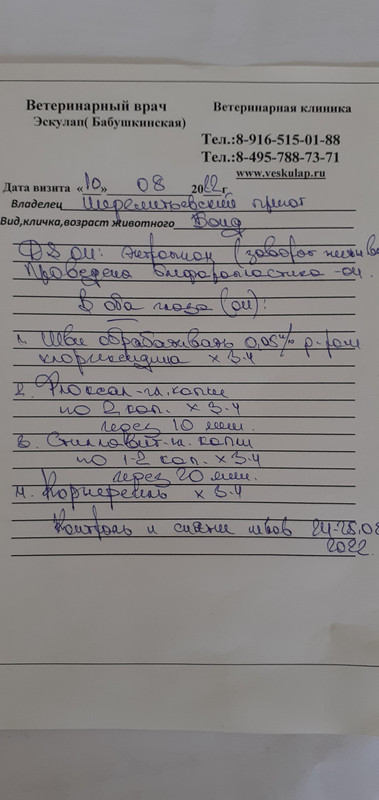 Ветеринарный врач
Эскулап( Бабушкинская)
Ветеринарная клиника
Тел.:8-916-515-01-88
Тел.:8-495-788-73-71
www.veskulap.ru
Дата визита «10» 08 2022г.
Владелец Шереметьевский приют
Вид,кличка,возраст животного Бонд
DS OU: Энтропион (заворот нижн. ве
Проведена блефаропластика -OU.
В оба глаза (OU):
1. Швы обрабатывать 0,05% р-ром
хлоргексидина х 3-4
2. Флоксал-гл. капли
по 2 кап. х 3-4
через 10 мин.
3. Стиллавит-гл. капли
по 1-2 кап. х 3-4
через 20 мин.
4. Корнерегель х 3-4
Контроль и снятие швов 24-25.08
2022.